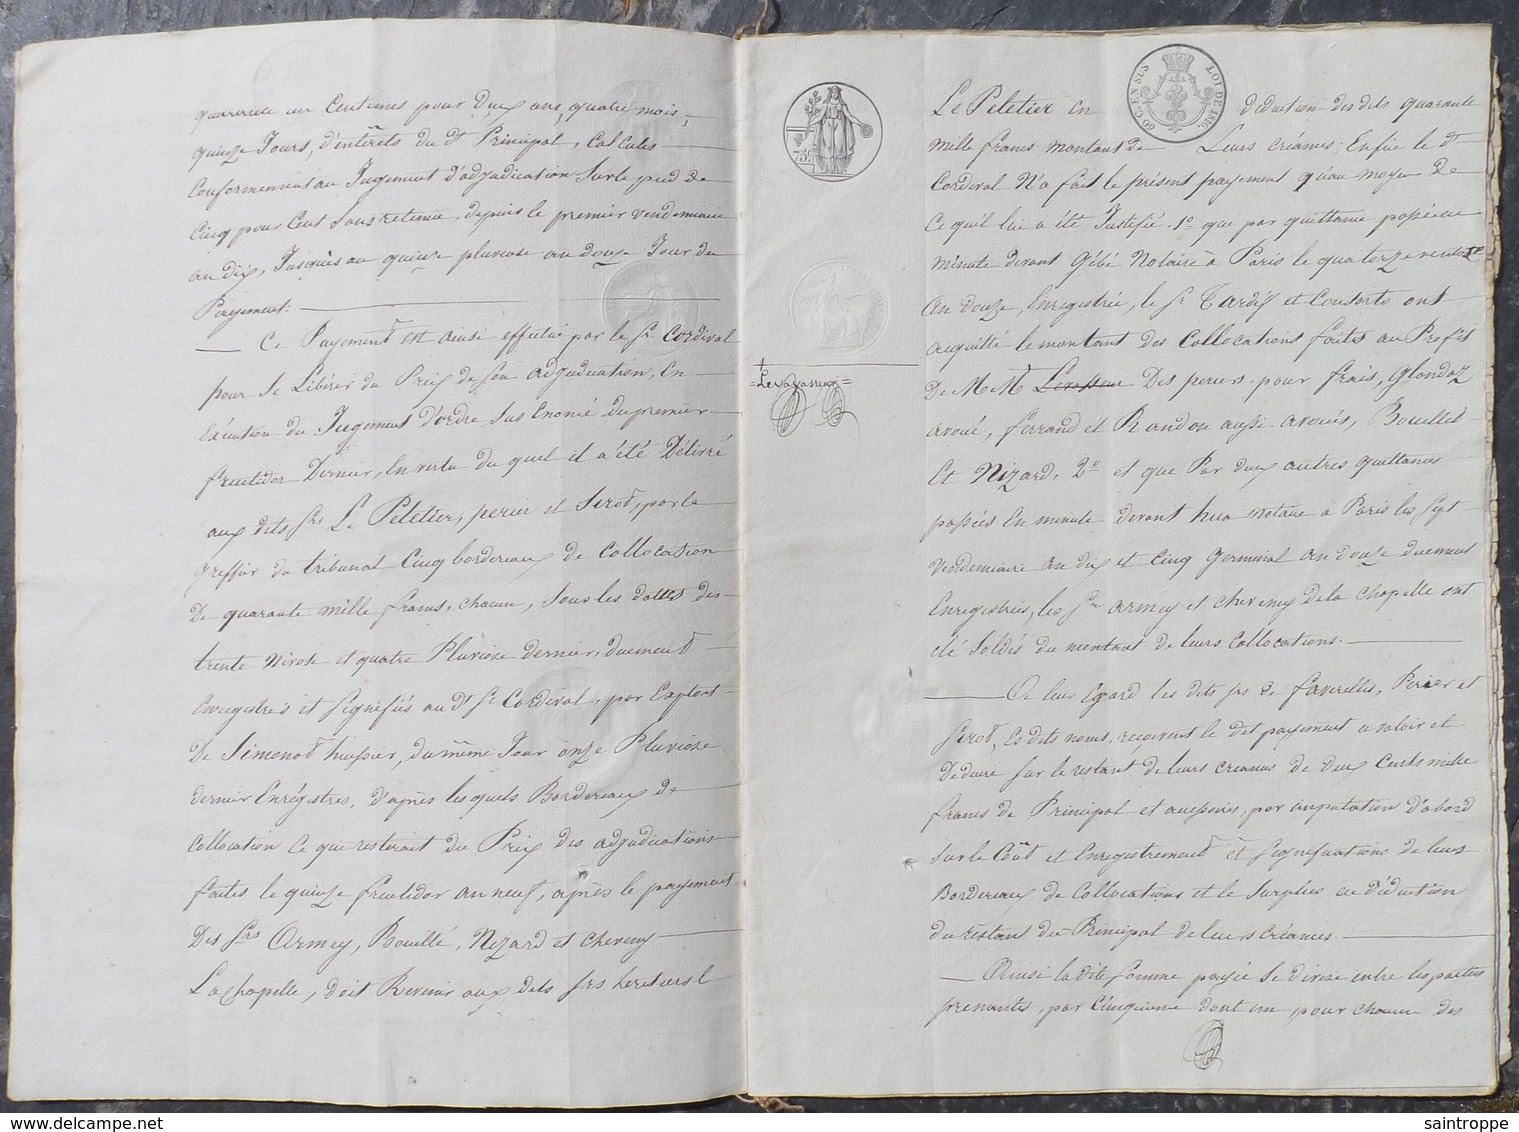 quarante un Centimes pour Dix ans, quatre mois,
quinze Jours, d'intérêts du dt Principal, Calculés
Conformément au Jugement d'adjudication Sur le pied de
Cinq pour Cent Sans retenue, depuis le premier vendemiaire
an dix, Jusques au quinze pluviose an douze Jour du
Payement.
Ce Payement est ainsi effectué par le Sr Cordival
pour Se Libérer du Prix de Son adjudication, En
Exécution du Jugement d'ordre Sus Enoncé du premier
fructidor Dernier, En vertu du quel il a été Délivré
aux dits Srs Le Peletier, perier et Serod, par le
greffier du tribunal Cinq bordereaux de Collocation
De quarante mille francs, chacun, Sous les dattes des
trente Nivose et quatre Pluviose dernier, duement
Enregistrés et Signifiés au dt Sr Cordival, par Exploit
De Simonot huissier, du même Jour onze Pluviose
dernier Enrégistrés, d'après les quels Bordereaux de
Collocation Ce que resterait du Prix des adjudications
faites le quinze fructidor an neuf, après le payement
Des Srs Armey, Bouillé, Nizard et Cheveny
La Chapelle, doit Revenir aux dits Srs heritiers
75c
60 C. EN SUS LOI DE 1816.
=Levavasseur=
Le Peletier en déduction des dits quarante
mille francs montant de Leurs créances; Enfin le dt
Cordival N'a fait le présent payement qu'au moyen de
Ce qu'il lui a été Justifié. 1o que par quittance passée en
minute devant Gébé Notaire à Paris le quatorze ventose
an douze, Enregistrée, le Sr Tardif et Consorts ont
acquitté le montant des Collocations faites au Profit
De M. M. Levasseur Des periers, pour frais, Glandaz
avoué, ferrand et Randon aussi avoués, Bouillet
Et Nizard, 2o et que Par deux autres quittances
passées En minute devant hua notaire à Paris les Sept
Vendemiaire an dix et Cinq germinal an douze duement
Enregistrées, les Srs armey et cheveny de la Chapelle ont
été Soldés du montant de leurs Collocations.
A leur Egard les dits Srs de faverelles, Perier et
Serod, Es dits noms, reçoivent le dit payement a valoir et
Déduire Sur le restant de leurs créances de deux Cents mille
francs de Principal et accessoires, par imputation d'abord
Sur le Coût et Enregistrement et Significations de leurs
Bordereaux de Collocations et le Surplus en déduction
du restant du Principal de leurs créances.
Ainsi la dite Somme payée Se divise entre les parties
prenantes, par Cinquieme dont un pour chacun des
saintroppe